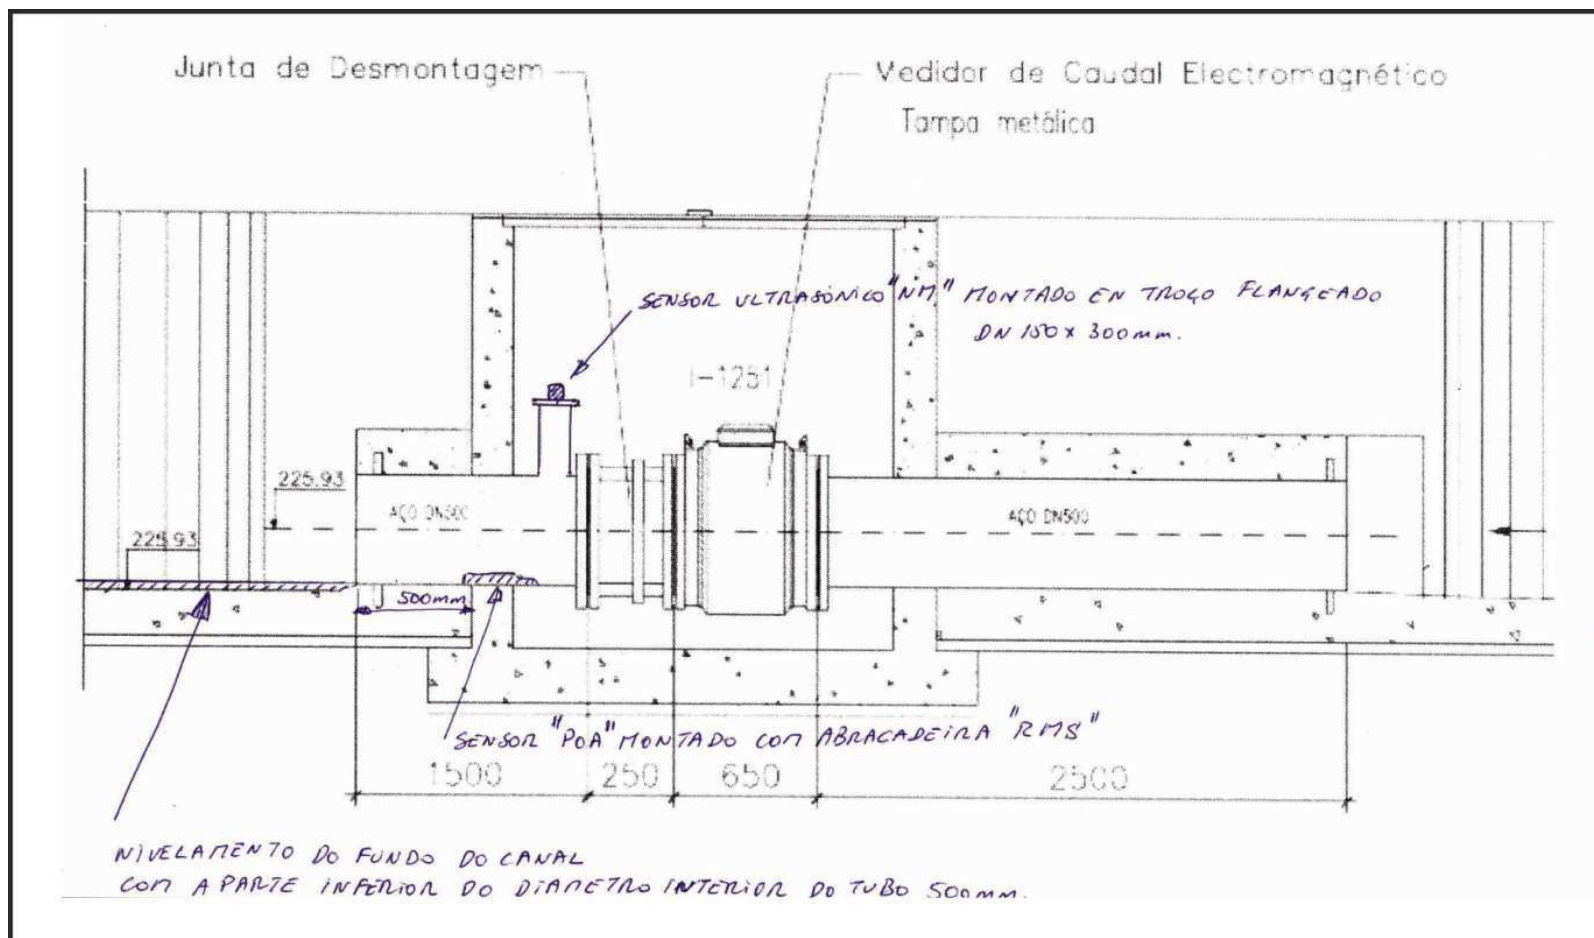 Junta de Desmontagem
Medidor de Caudal Electromagnético
Tampa metálica
SENSOR ULTRASÓNICO "NM" MONTADO EN TROÇO FLANGEADO
DN 150 x 300mm.
I-1251
225.93
AÇO DN500
AÇO DN500
225.93
500mm
SENSOR "POA" MONTADO COM ABRACADEIRA "RMS"
1500
250
650
2500
NIVELAMENTO DO FUNDO DO CANAL
COM A PARTE INFERIOR DO DIAMETRO INTERIOR DO TUBO 500mm.